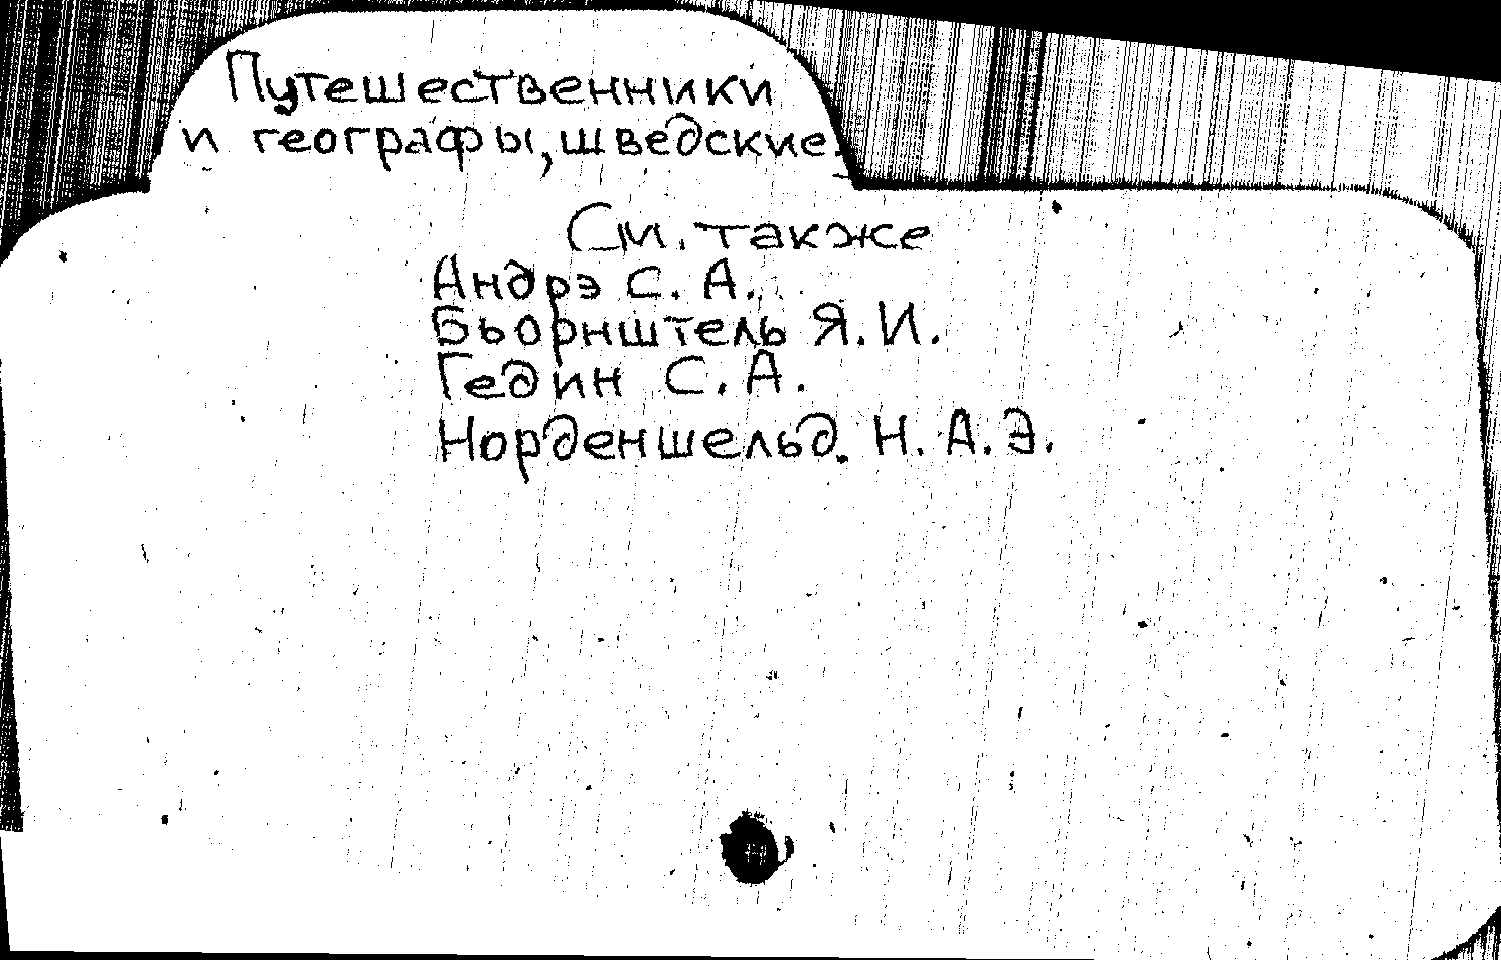 Путешественники
и географы, шведские.
См. также
Андрэ С. А.
Бьорнштель Я. И.
Гедин С. А.
Норденшельд. Н. А. Э.